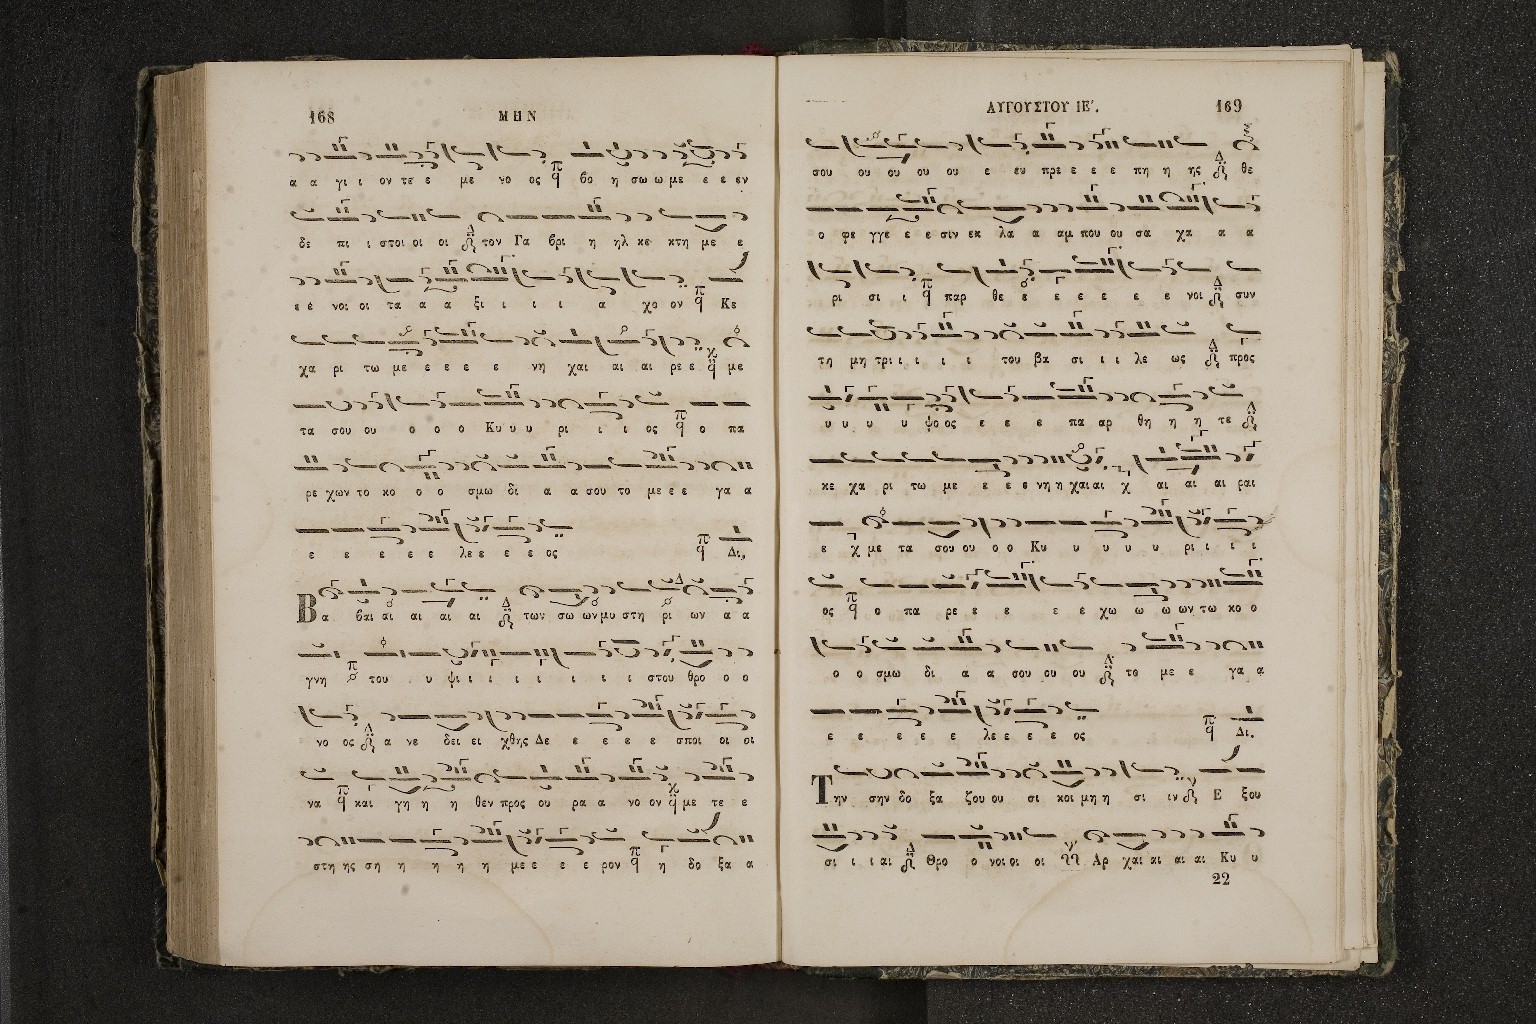 168
ΜΗΝ
α α γι ι ον τε ε με νο ος ϐο η σω ω με ε ε εν
δε πι ι στοι οι οι τον Γα ϐρι η ηλ κε κτη με ε
ε ε νοι οι τα α α ξι ι ι ι α χο ον Κε
χα ρι τω με ε ε ε ε νη χαι αι αι ρε ε με
τα σου ου ο ο ο Κυ υ υ ρι ι ι ος ο πα
ρε χων το κο ο ο σμω δι α α σου το με ε ε γα α
ε ε ε ε ε λε ε ε ε ος Δι.
Βα ϐαι αι αι αι αι των σω ων μυ στη ρι ων α α
γνη του υ ψι ι ι ι ι ι ι ι στου θρο ο ο
νο ος α νε δει ει χθης Δε ε ε ε ε σποι οι οι
να και γη η η θεν προς ου ρα α νο ον με τε ε
στη ης ση η η η η με ε ε ε ρον η δο ξα α
ΑΥΓΟΥΣΤΟΥ ΙΕʹ.
169
σου ου ου ου ου ε ευ πρε ε ε ε πη η ης θε
ο φε γγε ε ε σιν εκ λα α αμ που ου σα χα α α
ρι σι ι παρ θε ε ε ε ε ε ε νοι συν
τη μη τρι ι ι ι ι του βα σι ι ι λε ως προς
υ υ υ υ ψο ος ε ε ε πα αρ θη η η τε
κε χα ρι τω με ε ε ε νη η χαι αι αι αι αι ραι
ε με τα σου ου ο ο Κυ υ υ υ υ ρι ι ι ι
ος ο πα ρε ε ε ε ε χω ω ω ων τω κο ο
ο ο σμω δι α α σου ου ου το με ε γα α
ε ε ε ε ε λε ε ε ε ος Δι.
Την σην δο ξα ζου ου σι κοι μη η σι ιν Ε ξου
σι ι ι αι Θρο ο νοι οι οι Αρ χαι αι αι αι Κυ υ
22